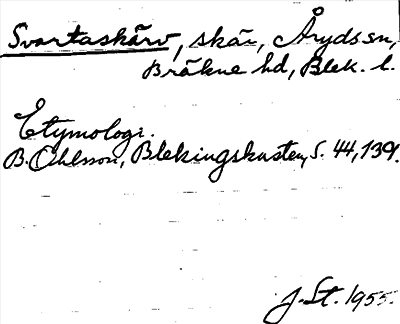 Svartaskärv, skär, Åryds sn,
Bräkne hd, Blek. l.
Etymologi.
B. Ohlsson, Blekingskusten, S. 44, 139.
J. St. 1955.